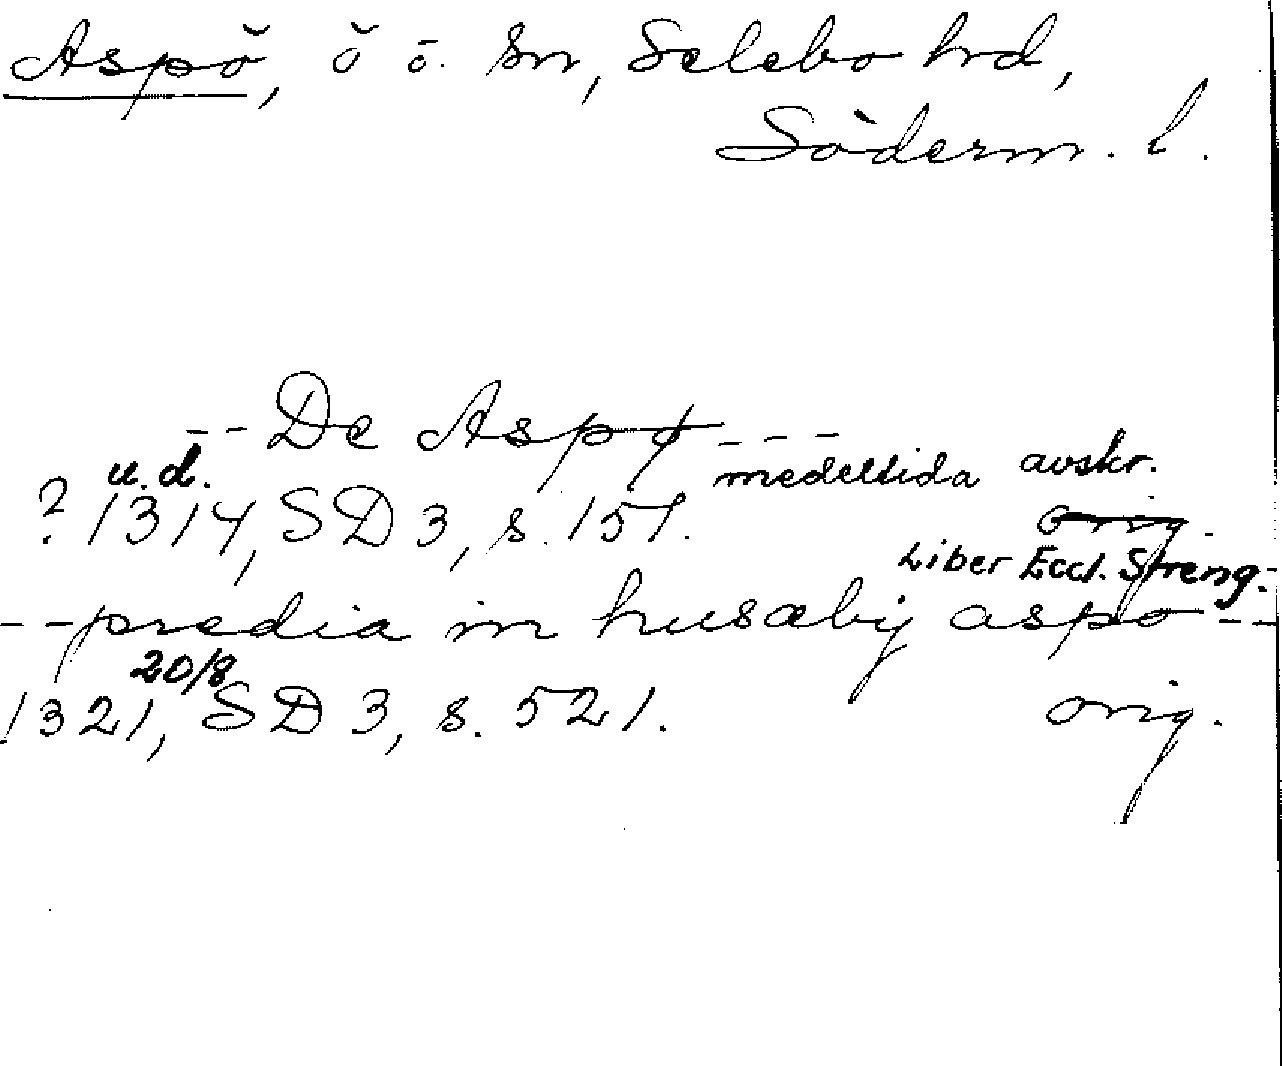 Aspö, ö o. sn, Selebo hd,
Söderm. l.
-- De Aspø ---
u.d. medeltida avskr.
? 1314, SD 3, s. 151. orig.
Liber Eccl. Streng.
-- predia in husæby aspo --
20/8
1321, SD 3, s. 521. orig.